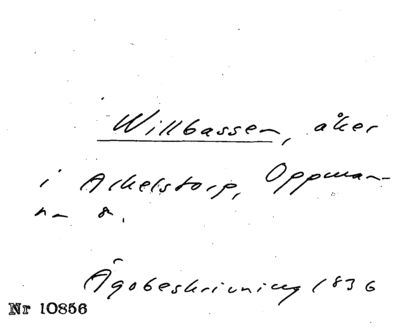 Willbassen, åker
i Arkelstorp, Oppman-
na s.
Ägobeskrivning 1836
Nr 10856